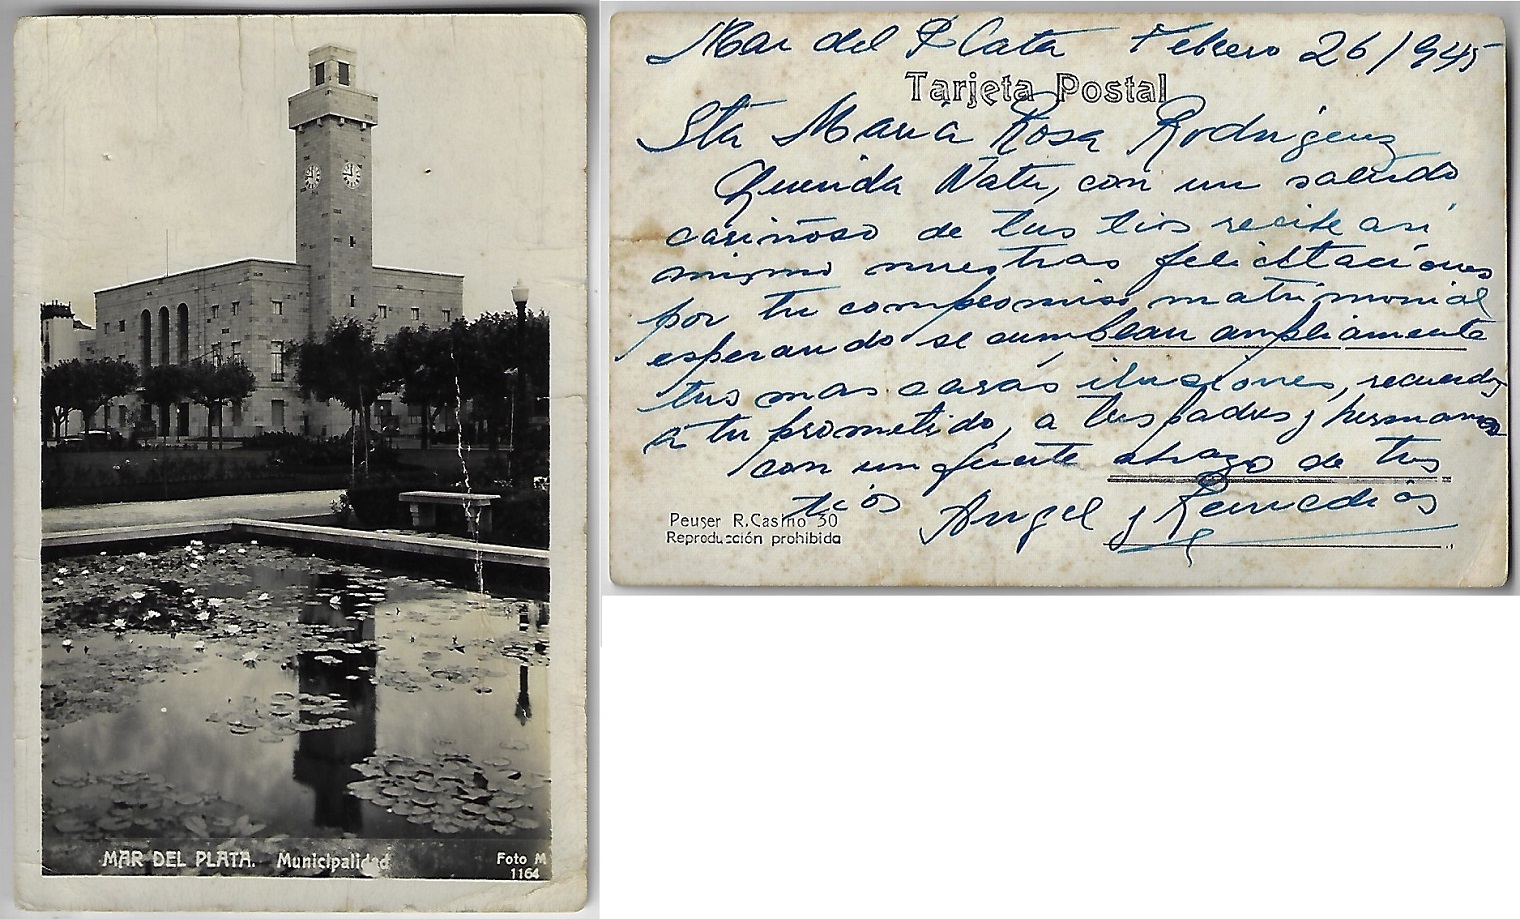 MAR DEL PLATA. Municipalidad
Foto M
1164
Mar del Plata Febrero 26/945
Tarjeta Postal
Sta Maria Rosa Rodriguez
Querida Nata, con un saludo
cariñoso de tus tios recibe asi
mismo nuestras felicitaciones
por tu compromiso matrimonial
esperando se cumplan ampliamente
tus mas caras ilusiones, recuerdos
a tu prometido, a tus padres y hermanos
con un fuerte abrazo de tus
tios Angel y Remedios
Peuser R.Casino 30
Reproducción prohibida